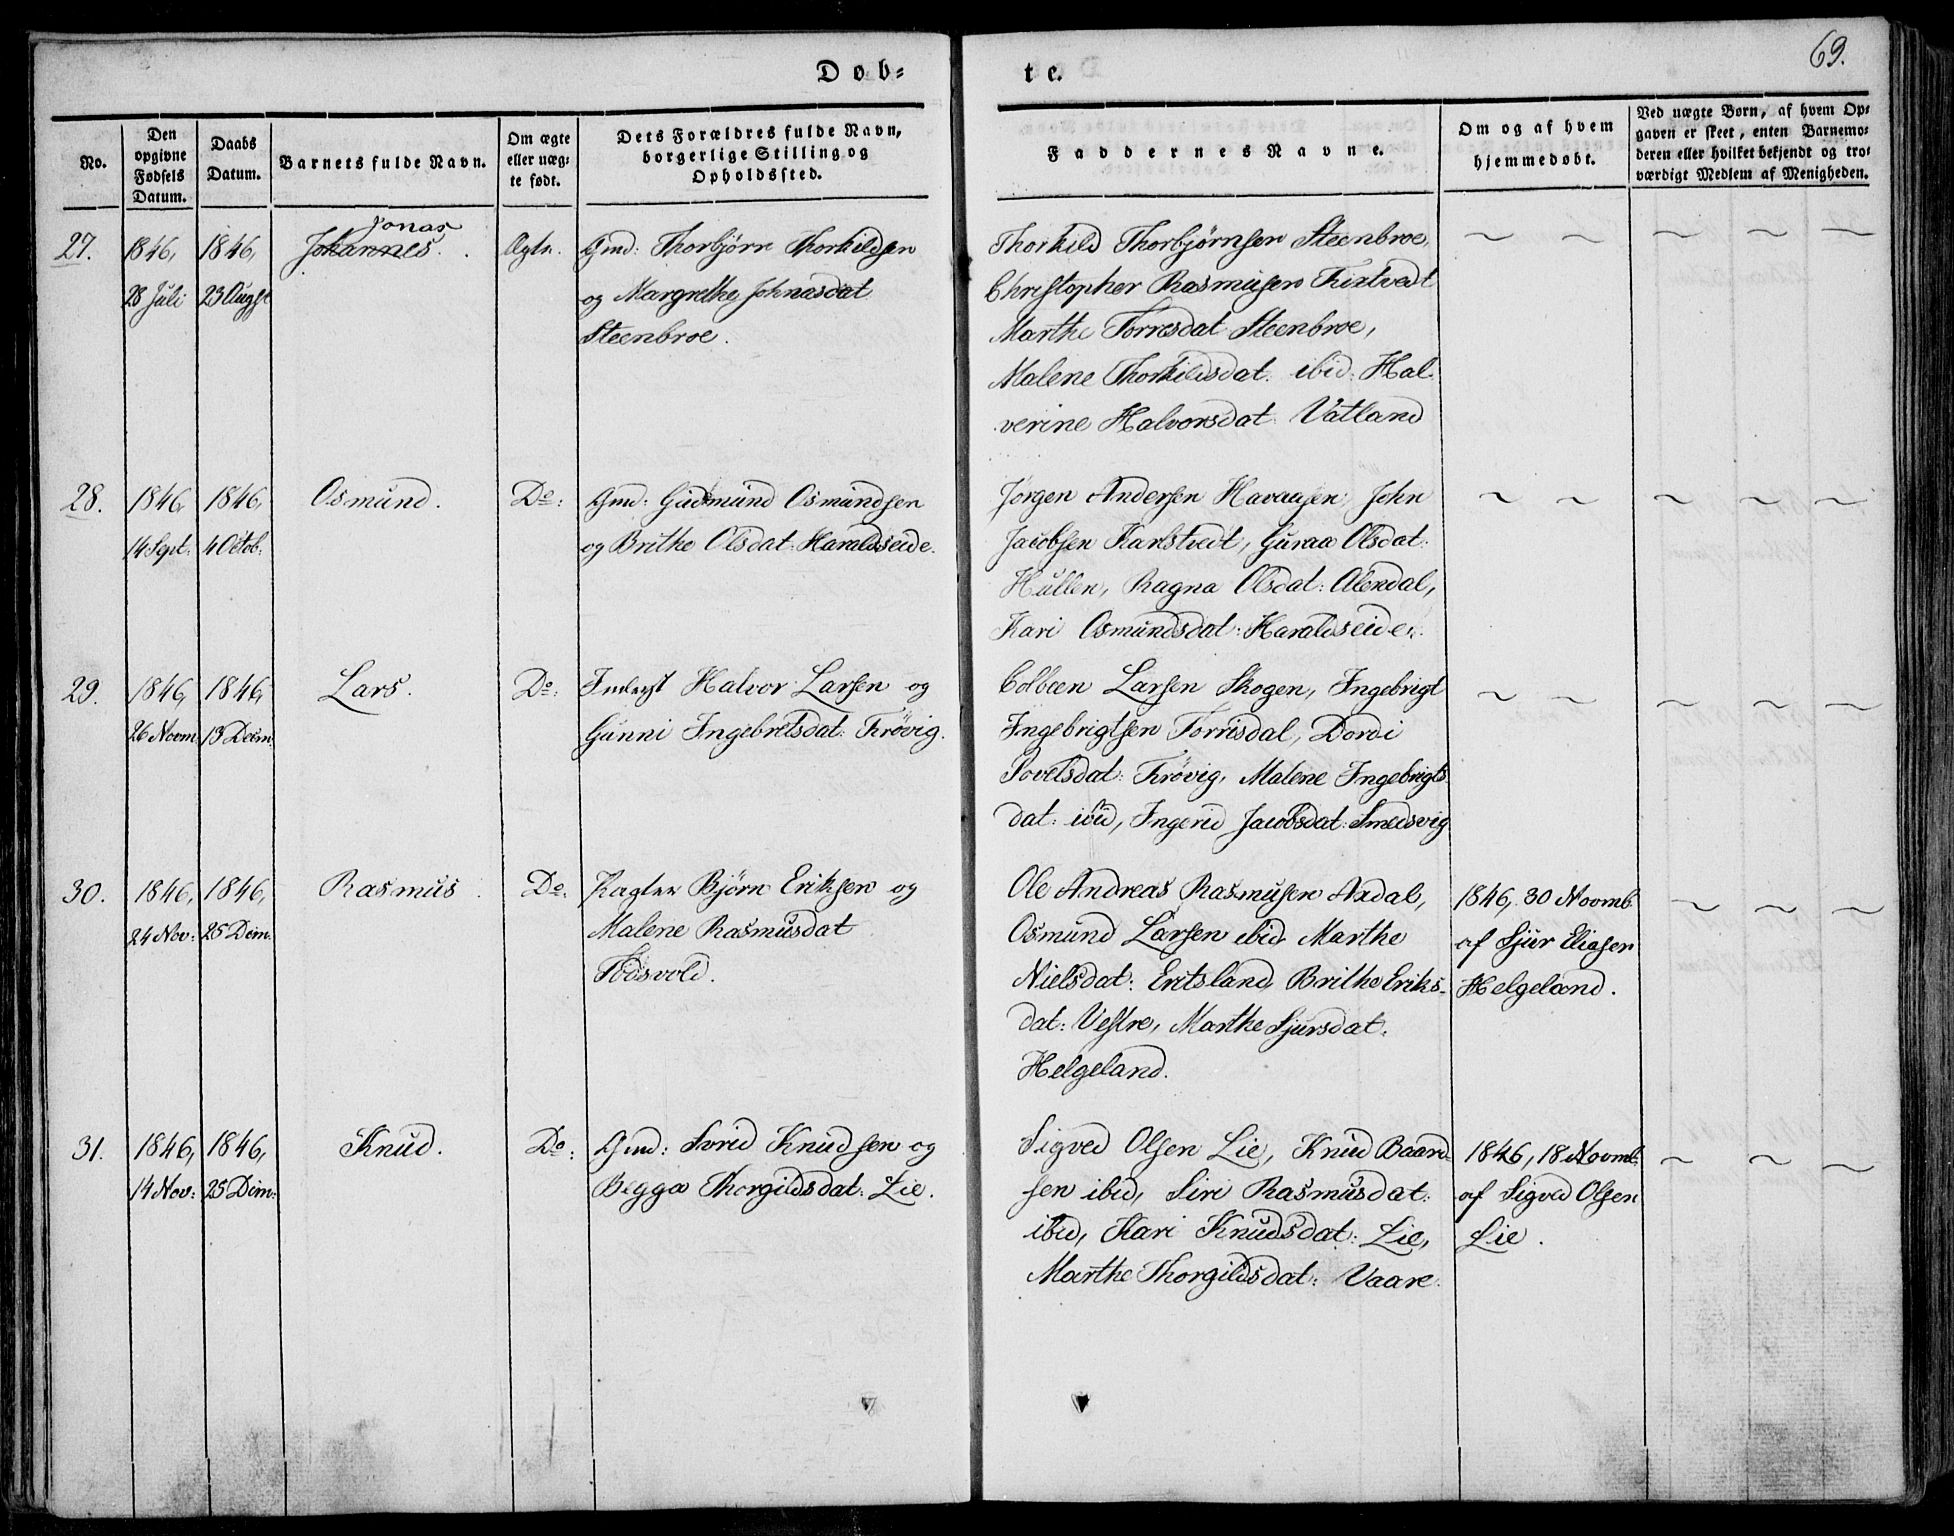 69.
Døb=
te.
No.
Den
opgivne
Fødsels
Datum.
Daabs
Datum.
Barnets fulde Navn.
Om ægte
eller uæg=
te født.
Dets Forældres fulde Navn,
borgerlige Stilling og
Opholdssted.
Faddernes Navne.
Om og af hvem
hjemmedøbt.
Ved uægte Børn, af hvem Op=
gaven er skeet, enten Barnemo=
deren eller hvilket bekjendt og tro=
værdigt Medlem af Menigheden.
27.
1846,
28 Juli
1846,
23 Augst
Jonas
Johannes.
Ægte.
Gmd: Thorbjørn Thorkildsen
og Margrethe Johnasdat
Steenbroe.
Thorkild Thorbjørnsen Steenbroe,
Christopher Rasmusen Tixtvedt
Marthe Torresdat Steenbroe,
Malene Thorkildsdat. ibid: Hal
verine Halvorsdat: Vatland
28.
1846,
14 Sept:
1846,
4 Octob:
Osmund.
Do:
Gmd: Gudmund Osmundsen
og Brithe Olsdat: Haraldseide.
Jørgen Andersen Havaasen, John
Jacobsen Karlstvedt, Guraa Olsdat:
Hullen, Ragna Olsdat: Alendal,
Kari Osmundsdat: Haraldseide.
29.
1846,
26 Novm
1846,
13 Decm
Lars.
Do:
Inderst Halvor Larsen og
Gunni Ingebretsdat: Trøvig.
Colbeen Larsen Skogen, Ingebrigt
Ingebrigtsen Torrisdal, Dordi
Povelsdat: Trøvig, Malene Ingebrigts
dat: ibid, Ingerid Jacobsdat: Smedsvig
30.
1846,
24 Nov:
1846,
25 Dem:
Rasmus.
Do:
Bjørn Eriksen og
Malene Rasmusdat
Tødsvold.
Ole Andreas Rasmusen Axdal,
Osmund Larsen ibid, Marthe
Nielsdat: Eritsland, Brithe Eriks-
dat: Vestre, Marthe Sjursdat:
Helgeland.
1846, 30 Novmb
af Sjur Eliasen
Helgeland.
31.
1846,
14 Nov:
1846,
25 Dem:
Knud.
Do:
Gmd: Torid Knudsen og
Begga Thorgildsdat: Lie.
Sigved Olsen Lie, Knud Baard-
sen ibid, Siri Rasmusdat:
ibid, Kari Knudsdat: Lie,
Marthe Thorgildsdat: Vaare.
1846, 18 Novmb:
af Sigved Olsen
Lie.